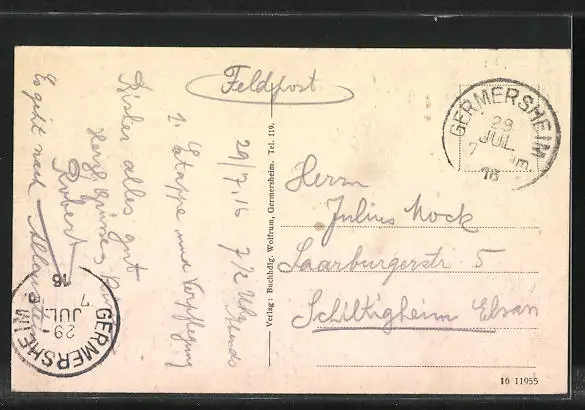 Feldpost
GERMERSHEIM
29
JUL
7
16
29/7.16 7½ Uhr abends
1. Etappe und Verpflegung
Bisher alles gut
Herzl. Grüsse
Robert
Es geht nach
Herrn
Julius Mock
Saarburgerstr 5
Schiltigheim Elsass
Verlag: Buchhdlg. Wolfrum, Germersheim. Tel. 119.
GERMERSHEIM
29
JUL
7
16
16 11955